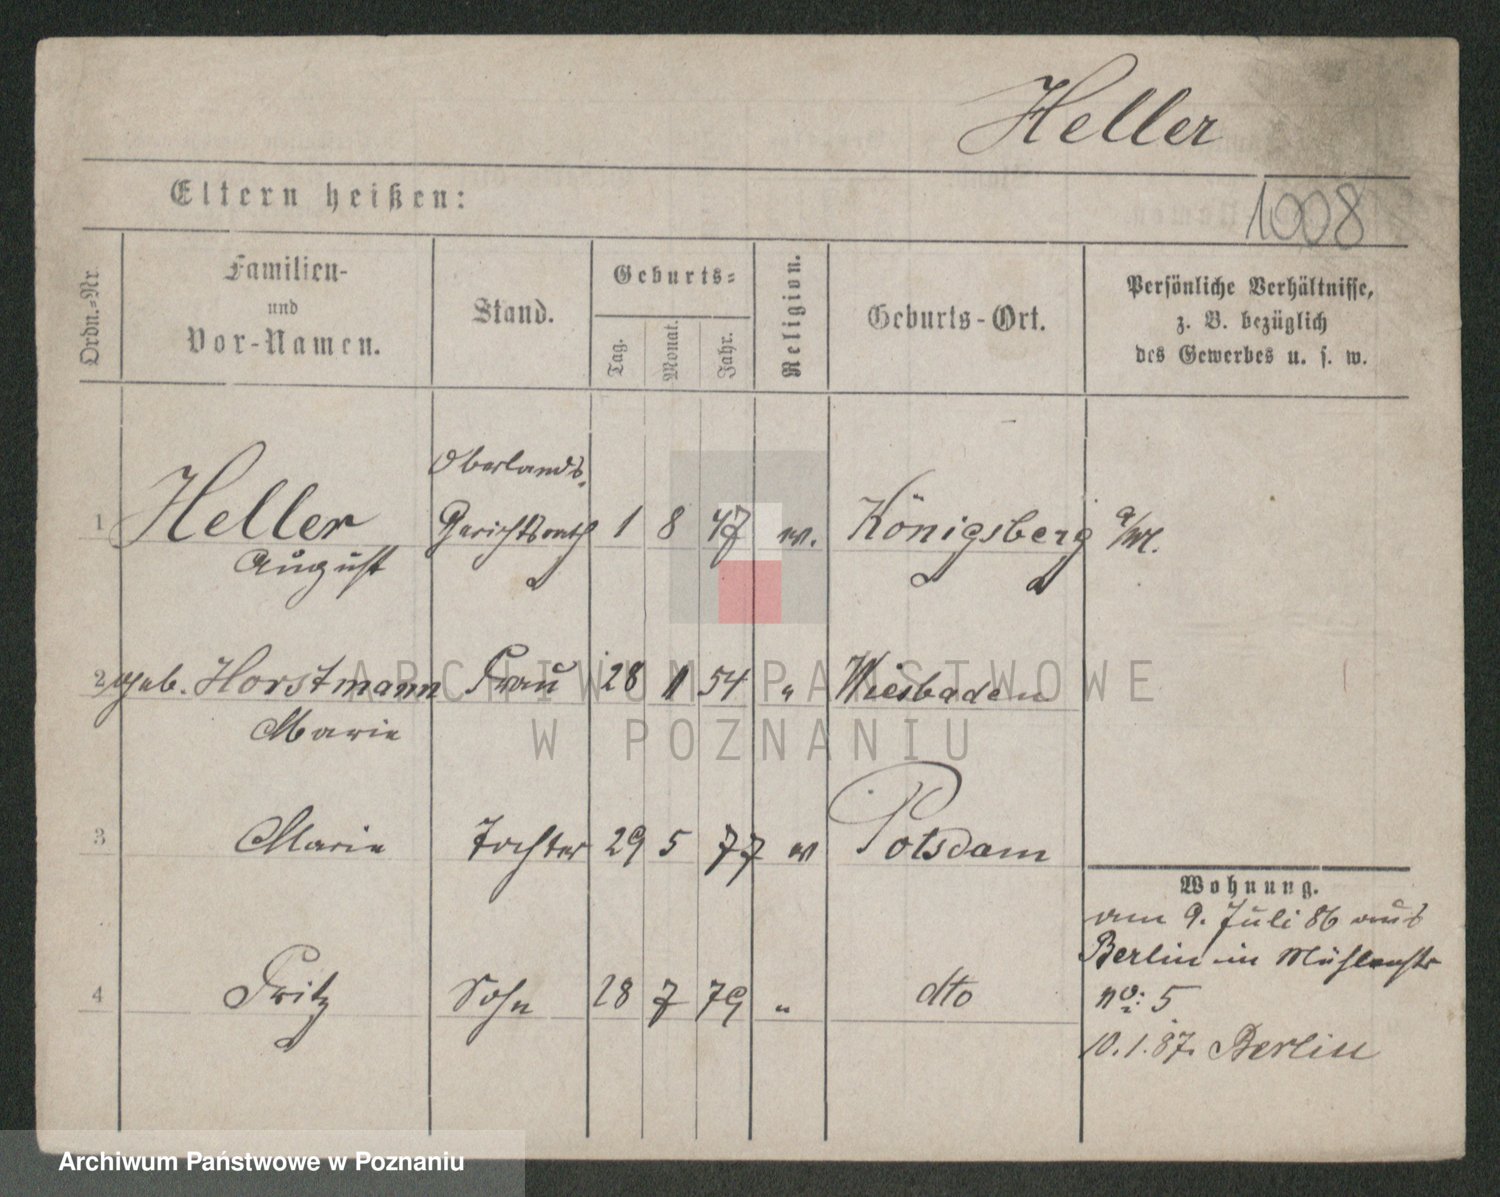 Heller
Eltern heißen:
1008
Ordn.-Nr
Familien-
und
Vor-Namen.
Stand.
Geburts-
Tag.
Monat.
Jahr.
Religion.
Geburts-Ort.
Persönliche Verhältnisse,
z. B. bezüglich
des Gewerbes u. s. w.
Oberlands-
1 Heller Gerichtsrath 1 8 47 ev. Königsberg
August
2 geb. Horstmann Frau 28 11 54 " Wiesbaden
Marie
3 Marie Tochter 29 5 77 ev Potsdam
4 Fritz Sohn 28 7 79 " dto
Wohnung.
am 9. Juli 86 aus
Berlin in Mühlenstr
No: 5
10.1.87. Berlin
ARCHIWUM PAŃSTWOWE
W POZNANIU
Archiwum Państwowe w Poznaniu